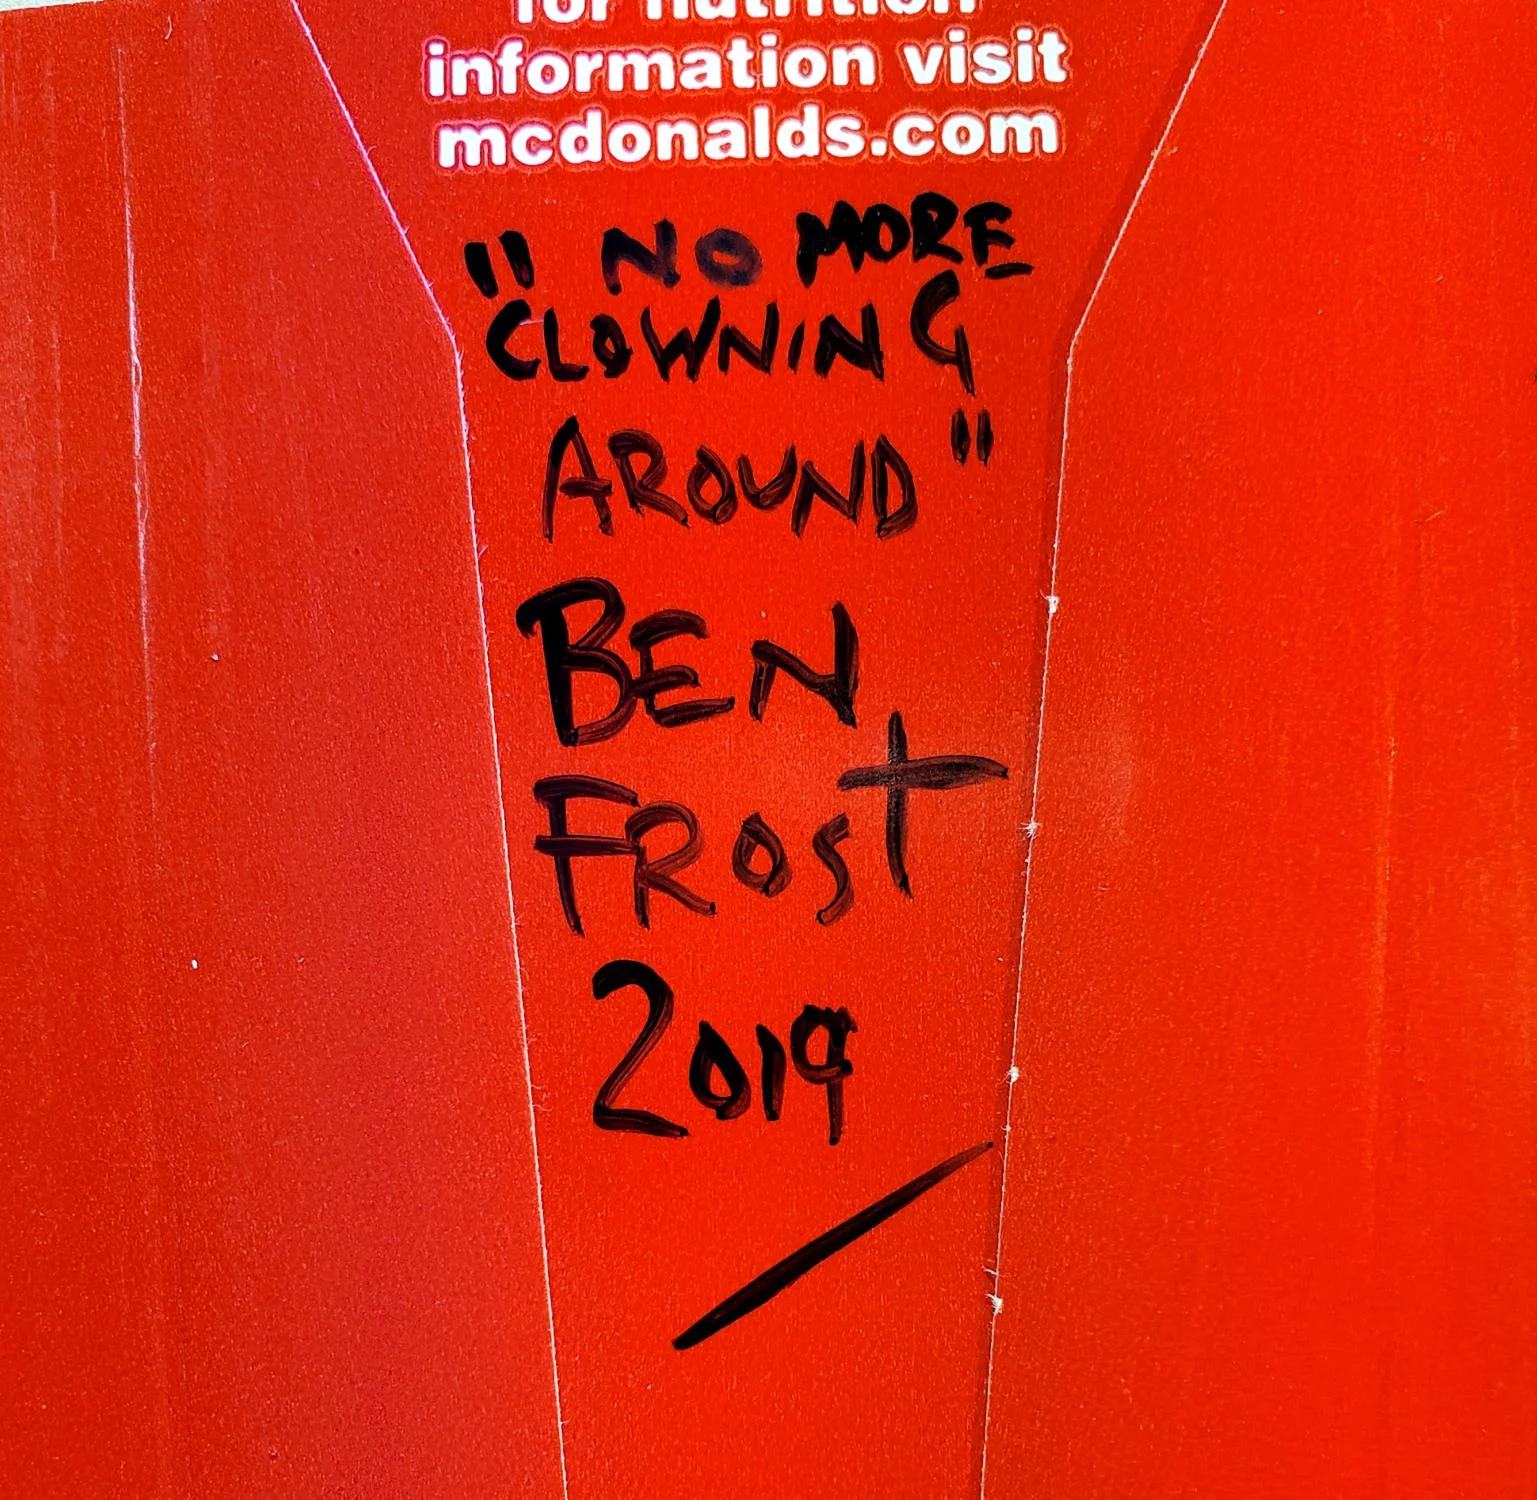 for nutrition
information visit
mcdonalds.com
"NO MORE
CLOWNING
AROUND"
BEN
FROST
2019